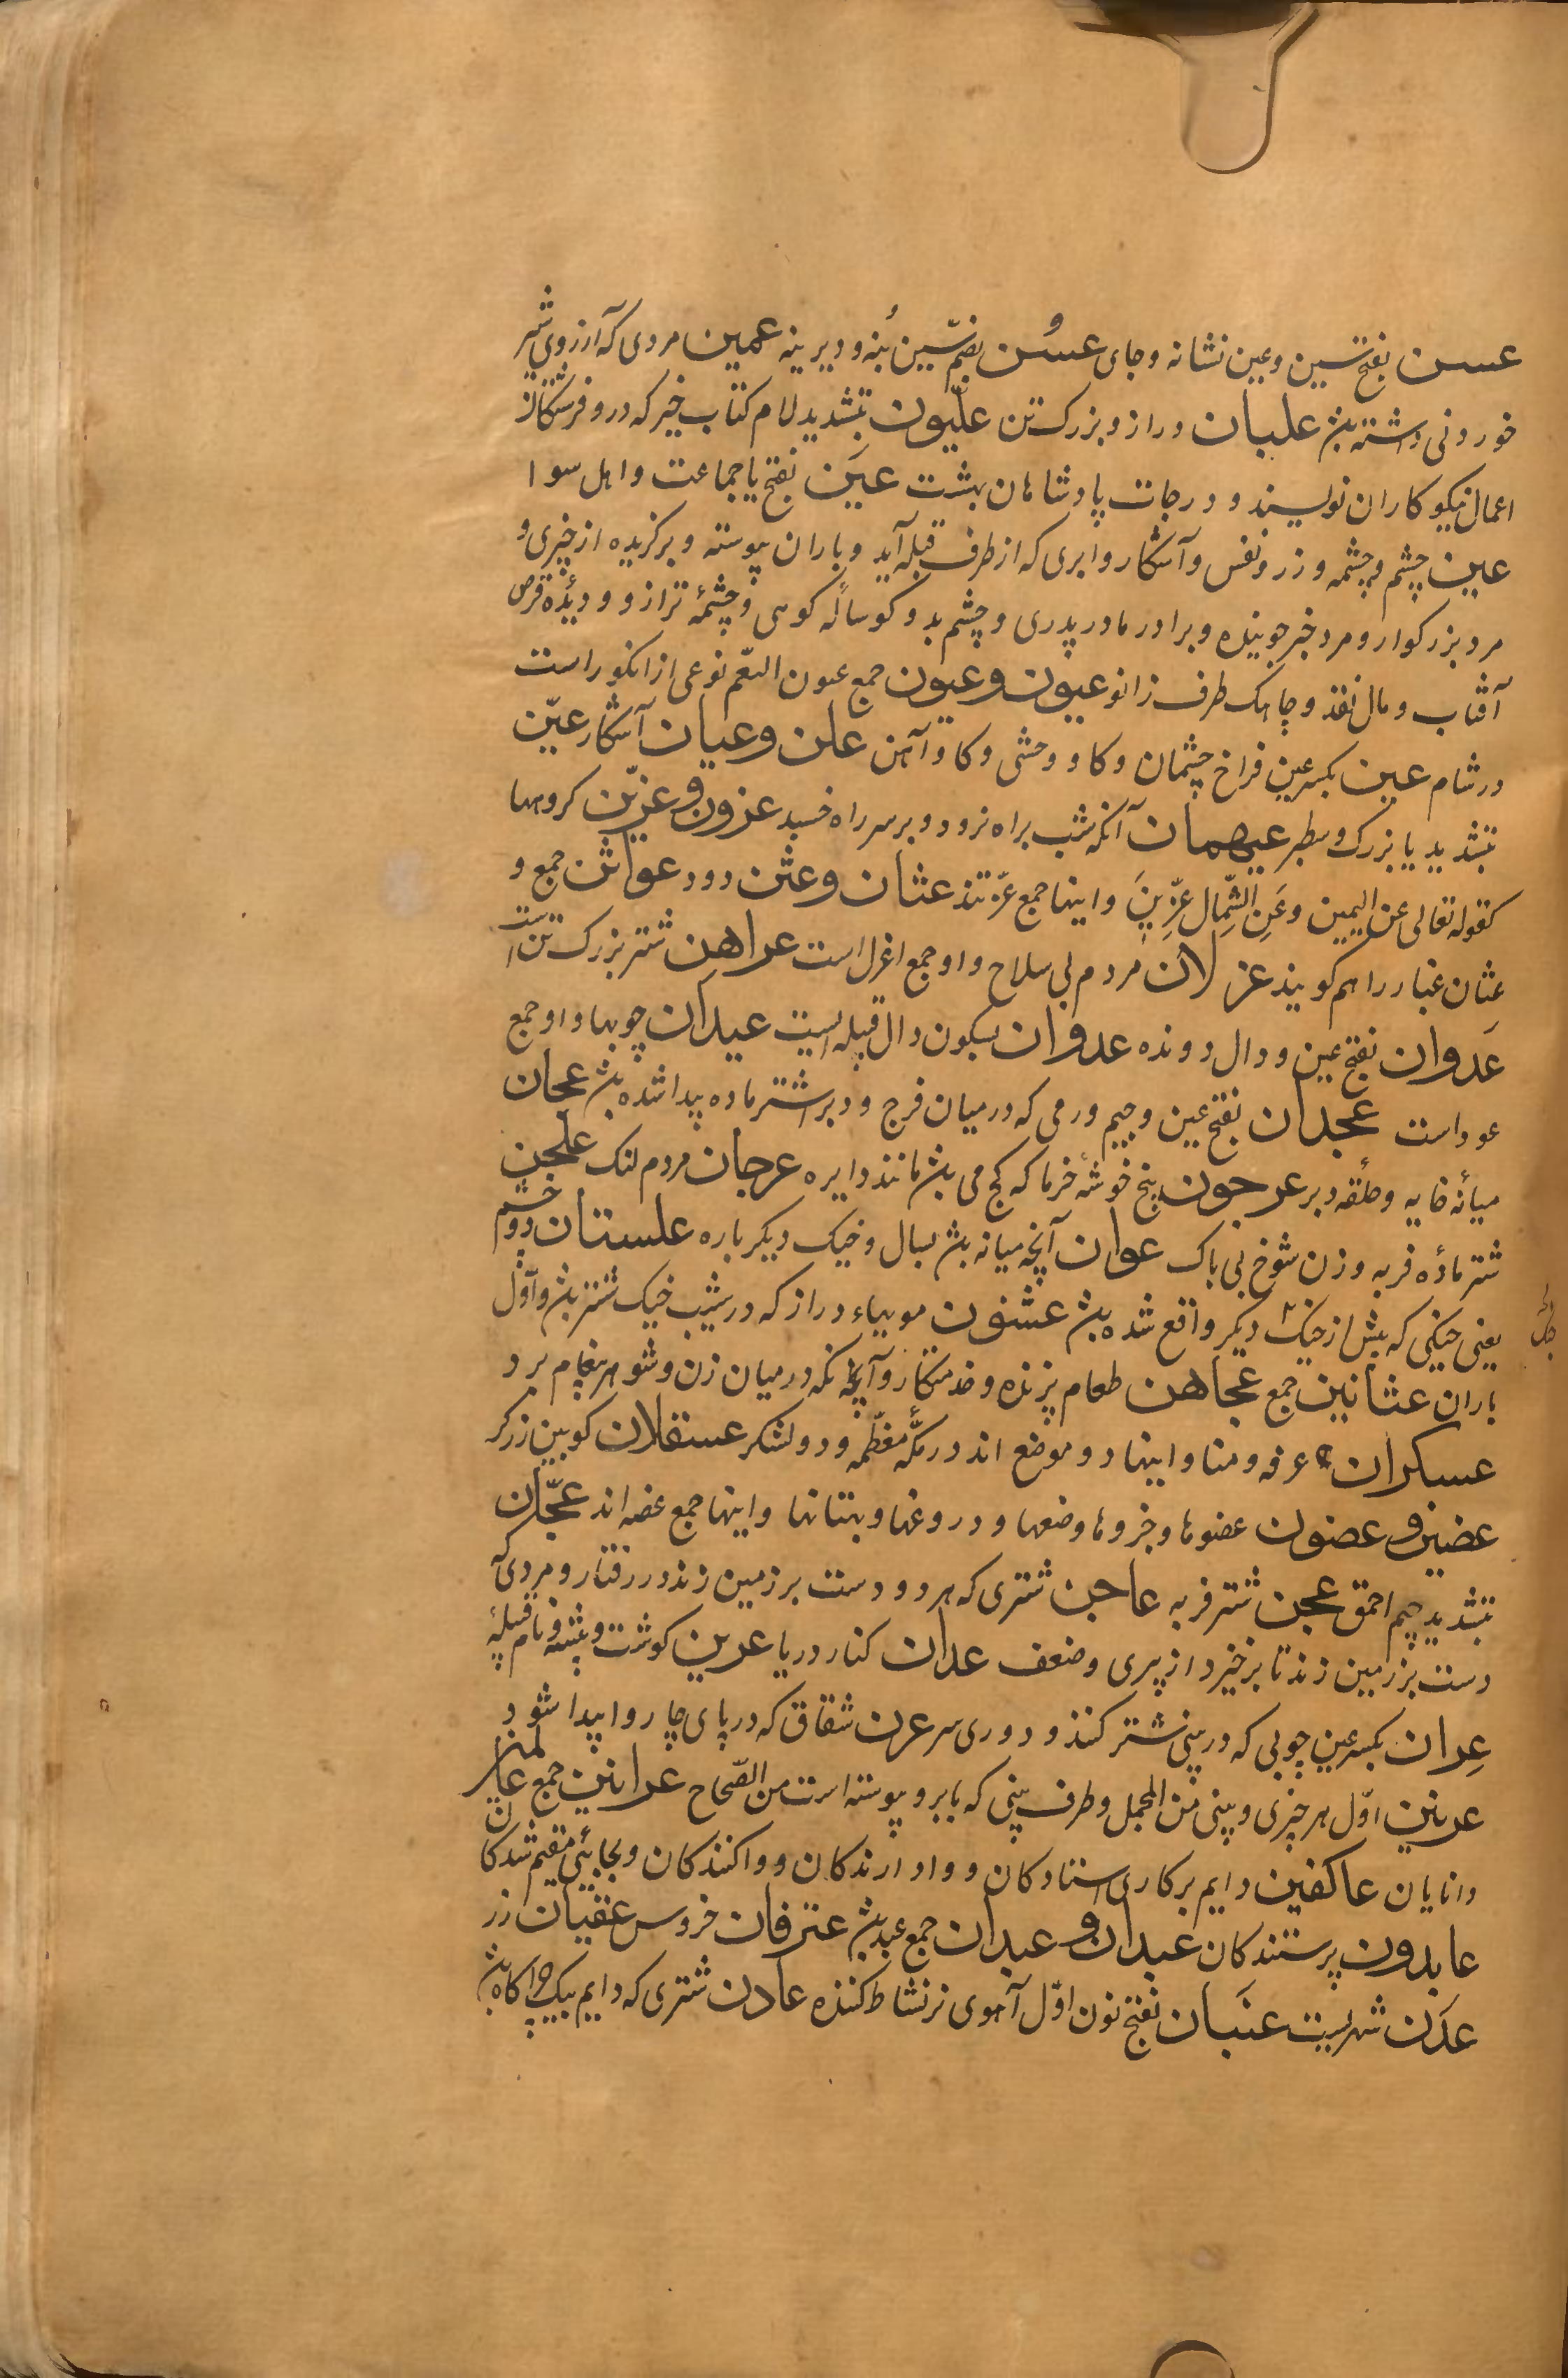 عسن بفتح سین و عین نشانه و جای عسُن بضم سین بُنه و دیرینه عمین مردی که آرزوی شیر
خوردنی داشته بشد علبان دراز و بزرک تن علّیون بتشدید لام کتاب خیر که درو فرشتکان
اعمال نیکوکاران نویسند و درجات پادشاهان بهشت عیَن بفتح یا جماعت و اهل سوا
عین چشم و چشمه و زر و نفس و آشکار و ابری که از طرف قبله آید و باران پیوسته و برکزیده از چیزی و
مرد بزرکوار و مرد خبر جوینده و برادر مادر پدری و چشم بد و کوساله کوهی و چشمهٔ ترازو و دیدهٔ قرص
آفتاب و مال نقد و چاهک طرف زانو عیون و عیون جمع عیون البقر نوعی از انکور است
در شام عین بکسر عین فراخ چشمان و کاو وحشی و کاو آهن علن و عیان آشکار عیّن
بتشدید یا بزرک و سطبر عیهمان آنکه شب براه نرود و بر سر راه خسبد عزون و عزین کروهها
کقوله تعالی عن الیمین وَعَنِ الشِّمَالِ عِزِینَ و اینها جمع عزه‌تند عثان و عثن دود عواثن جمع و
عثان غبار را هم کویند عزلان مردم بی سلاح و او جمع اعزل است عراهن شتر بزرک تن است
عَدوان بفتح عین و دال دونده عدوان بسکون دال قبیله ایست عیدان چوبها و او جمع
عود است عجدان بفتح عین و جیم ورمی که در میان فرج و دبر اشتر ماده پیدا شده بشد عجان
میانهٔ خایه و حلقهٔ دبر عرجون پنج خوشهٔ خرما که کج می بشد مانند دایره عرجان مردم لنک علجن
شتر مادهٔ فربه و زن شوخ بی باک عوان آنچه میانه بشد بسال و جنک دیکر باره علستان دوم خشم
یعنی جنکی که پیش از جنک دیکر واقع شده بشد عشنون موییاء دراز که در شیب خنک شتر بشد و اوّل
باران عثانین جمع عجاهن طعام پزنده و خدمتکار و آنکه در میان زن و شوهر پیغام برد
عسکران عرفه و منا و اینها دو موضع اند در مکّهٔ معظّمه و دو لشکر عسقلان کوبین زرکر
عضین و عضون عضوها و جزوها وضعها و دروغها و بهتانها و اینها جمع عضه اند عجّان
بتشدید جیم احمق عجن شتر فربه عاجن شتری که هر دو دست بر زمین زند در رفتار و مردی که
دست بر زمین زند تا برخیزد از پیری و ضعف عدان کنار دریا عرین کوشت و بیشه و نام قبیلهٔ
عِران بکسر عین چوبی که در بینی شتر کنند و دوری سر عرن شقاق که در پای چاروا پیدا شود
عرنین اوّل هر چیزی و بینی من المجمل و طرف بینی که بابرو پیوسته است من الصّحاح عرانین جمع
دانایان عاکفین دایم بر کاری استادکان و وادارندکان و واکنندکان و بجایی مقیم شدکان
عابدون پرستندکان عبدان و عبدان جمع عبد بشد عترفان خروس عقیان زر
عدَن شهریست عنَبان بفتح نون اوّل آهوی نر نشاط کننده عادن شتری که دایم بیک چراکاه بشد